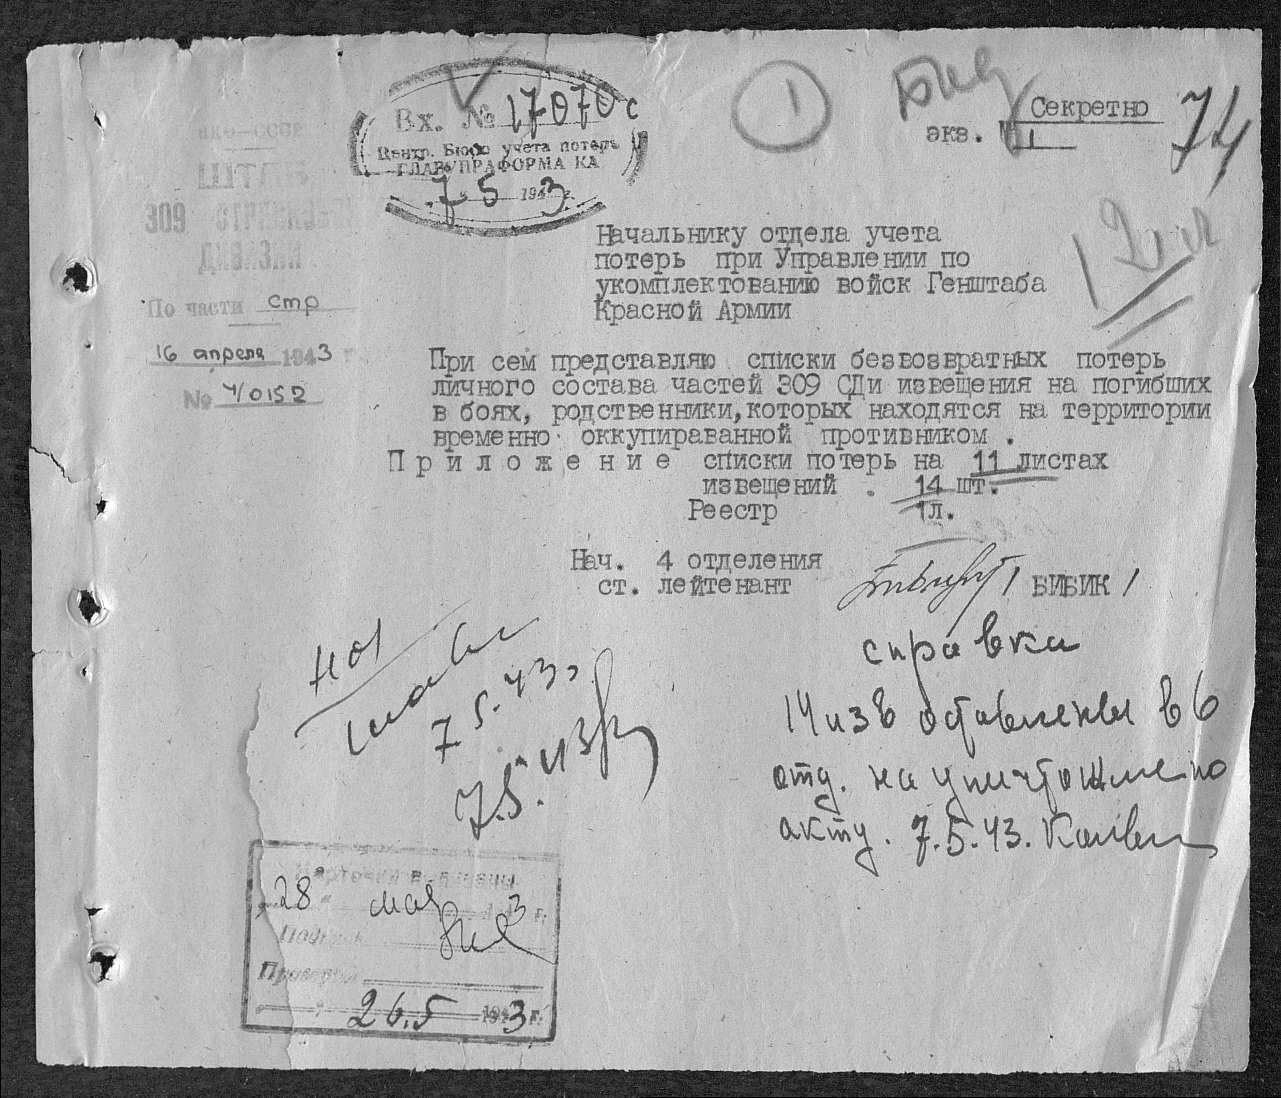 Вх. № 17070с
Центр. Бюро учета потерь
ГЛАВУПРАФОРМА КА
7 5 1943 г.
1
Секретно
экз. № 1
74
НКО–СССР
ШТАБ
309 СТРЕЛКОВАЯ
ДИВИЗИЯ
По части стр
16 апреля 1943 г
№ 4/0152
Начальнику отдела учета
потерь при Управлении по
укомплектованию войск Генштаба
Красной Армии
При сем представляю списки безвозвратных потерь
личного состава частей 309 СДи извещения на погибших
в боях, родственники,которых находятся на территории
временно оккупираванной противником .
Приложение списки потерь на 11 листах
извещений . 14 шт.
Реестр 1л.
Нач. 4 отделения
ст. лейтенант / БИБИК /
7 5.43
7.5.43
справка
14 изв оставлены в 6
отд. на уничтожение по
акту. 7.5.43.
„28“ мая 1943 г.
Проверил
26.5 1943 г.